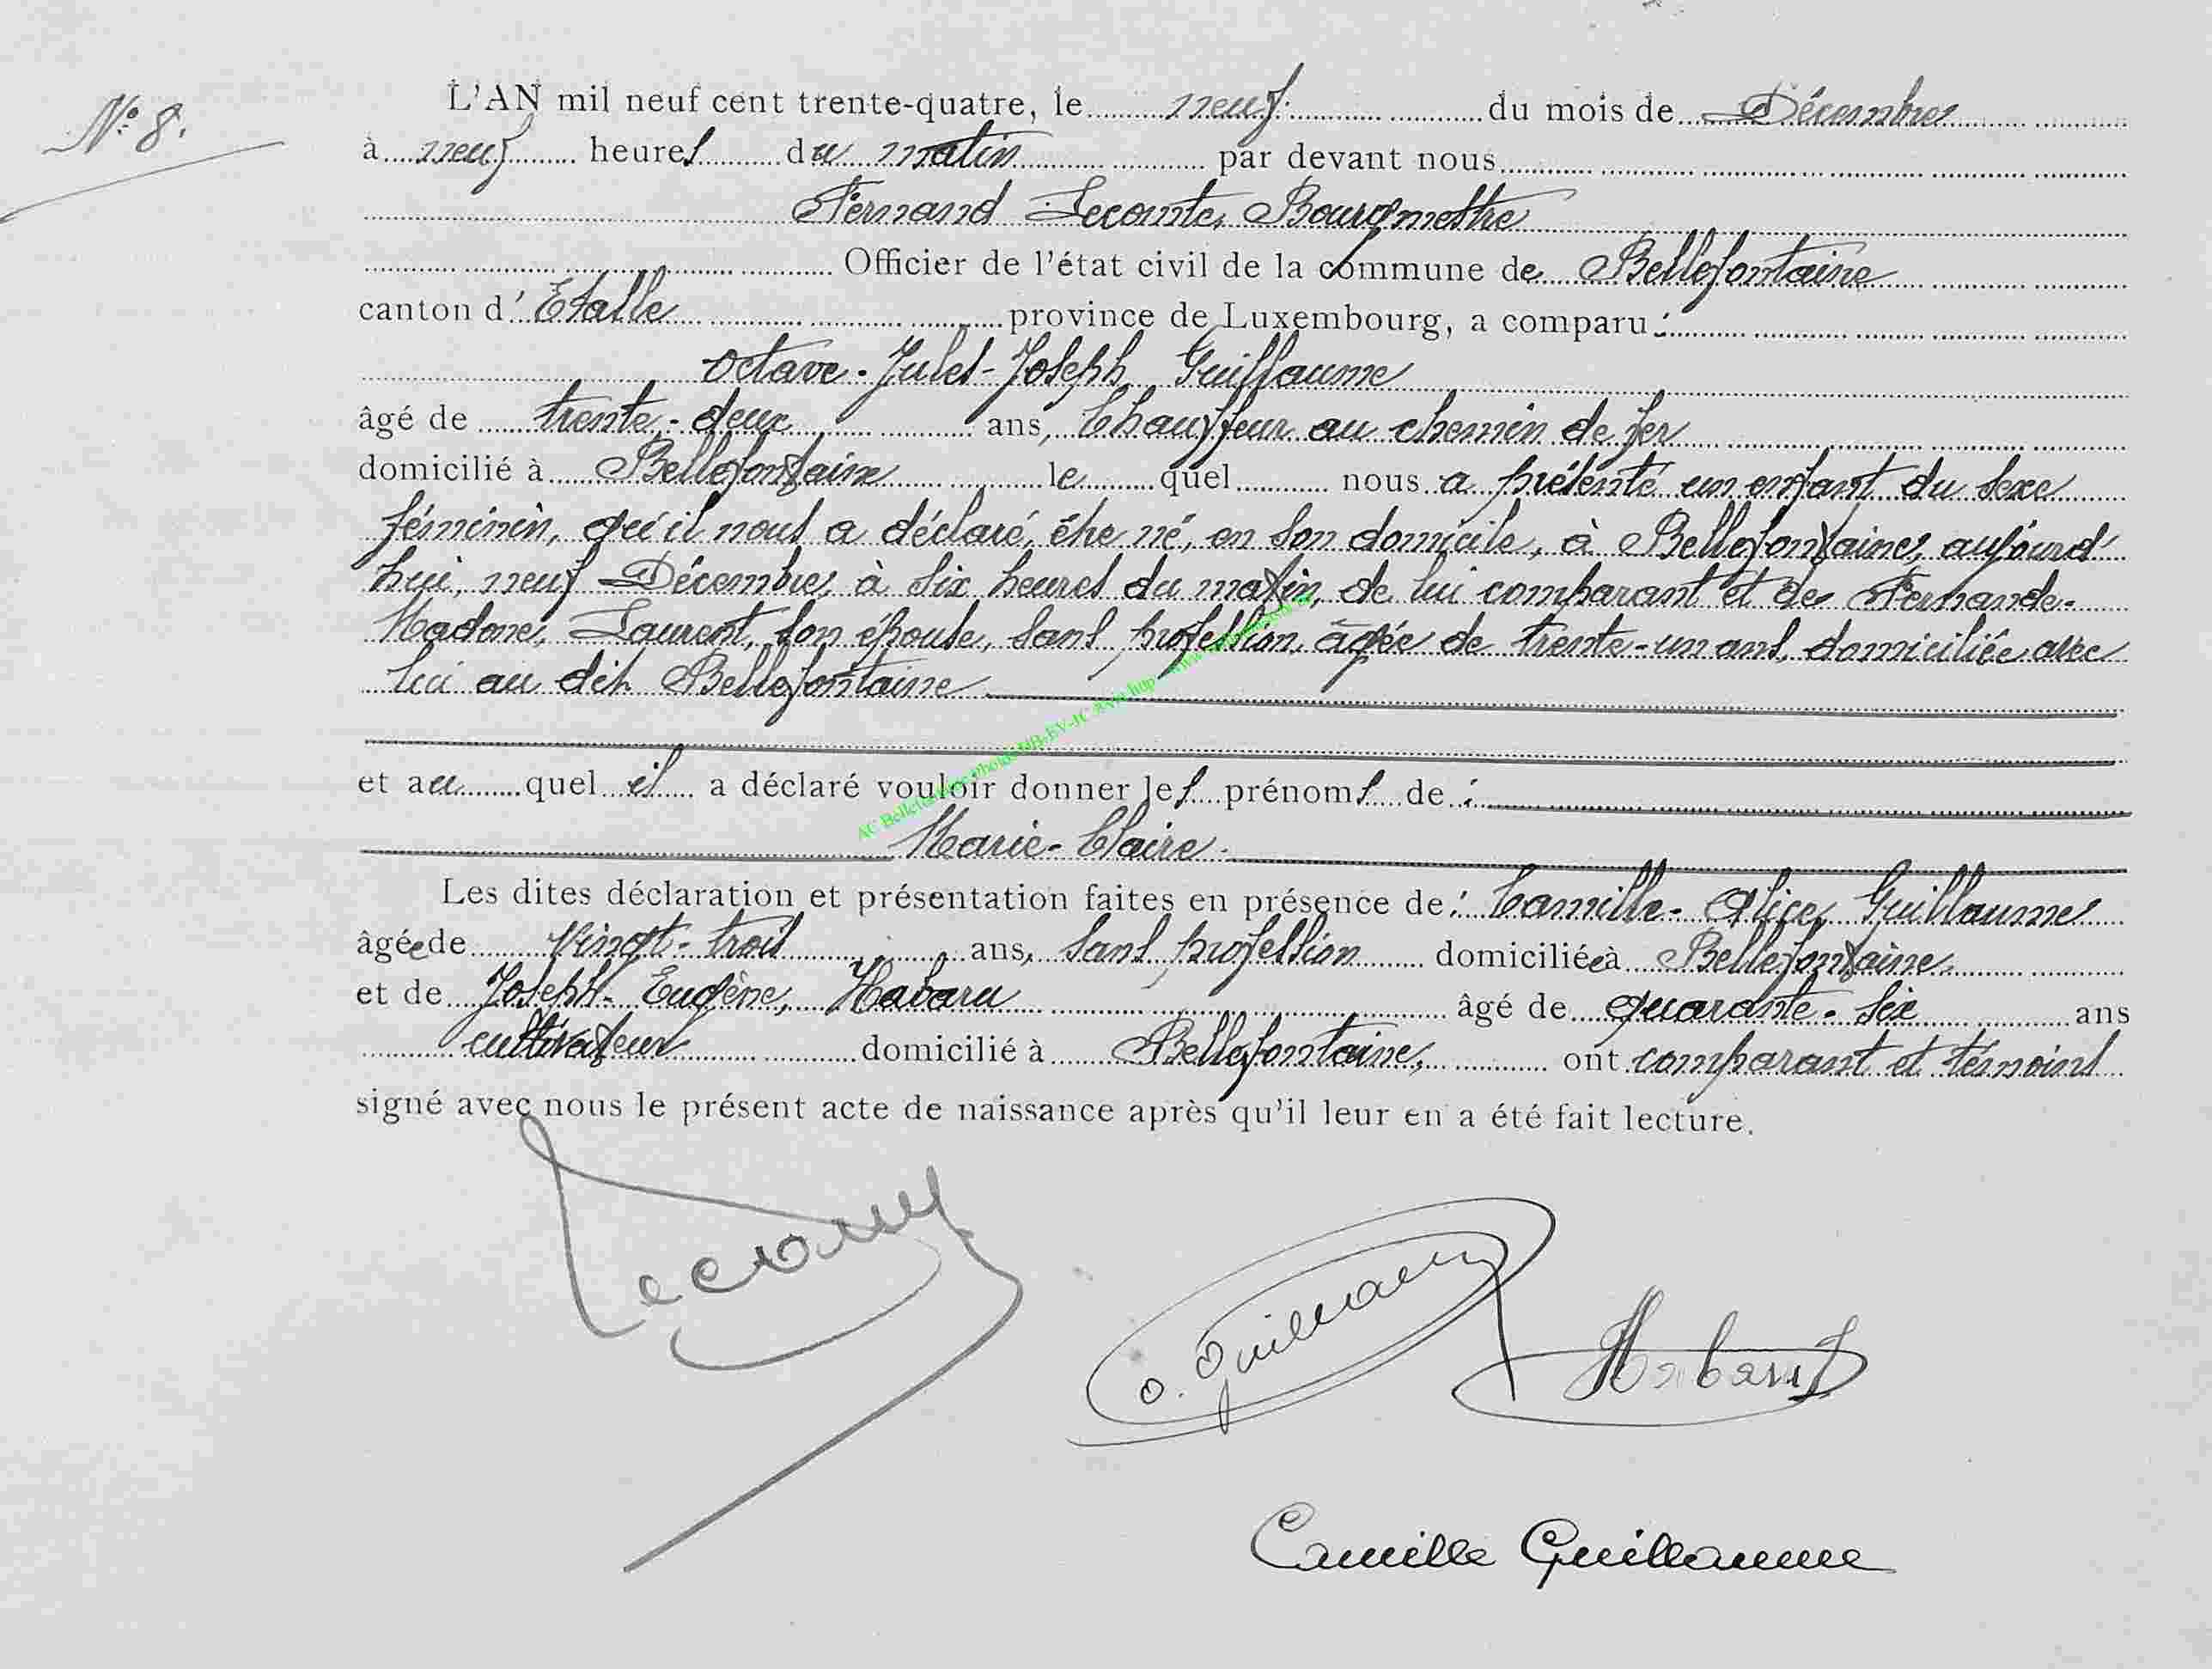 N° 8.
L'AN mil neuf cent trente-quatre, le neuf du mois de Décembre
à neuf heures du matin par devant nous
Fernand Lecomte, Bourgmestre
Officier de l'état civil de la commune de Bellefontaine
canton d'Etalle province de Luxembourg, a comparu :
Octave-Jules-Joseph Guillaume
âgé de trente-deux ans, Chauffeur au chemin de fer
domicilié à Bellefontaine lequel nous a présenté un enfant du sexe
féminin, qu'il nous a déclaré, être né, en son domicile, à Bellefontaine, aujourd'
hui, neuf Décembre, à six heures du matin, de lui comparant et de Fernande-
Madone, Laurent, son épouse, sans profession, âgée de trente-un ans, domiciliée avec
lui au dit Bellefontaine
et auquel il a déclaré vouloir donner les prénoms de :
Marie-Claire.
Les dites déclaration et présentation faites en présence de : Camille-Alice, Guillaume
âgée de Vingt-trois ans, sans profession domiciliée à Bellefontaine,
et de Joseph-Eugène, Habaru âgé de quarante-six ans
cultivateur domicilié à Bellefontaine, ont comparant et témoins
signé avec nous le présent acte de naissance après qu'il leur en a été fait lecture.
Lecomte
O. Guillaume
Habaru
Camille Guillaume